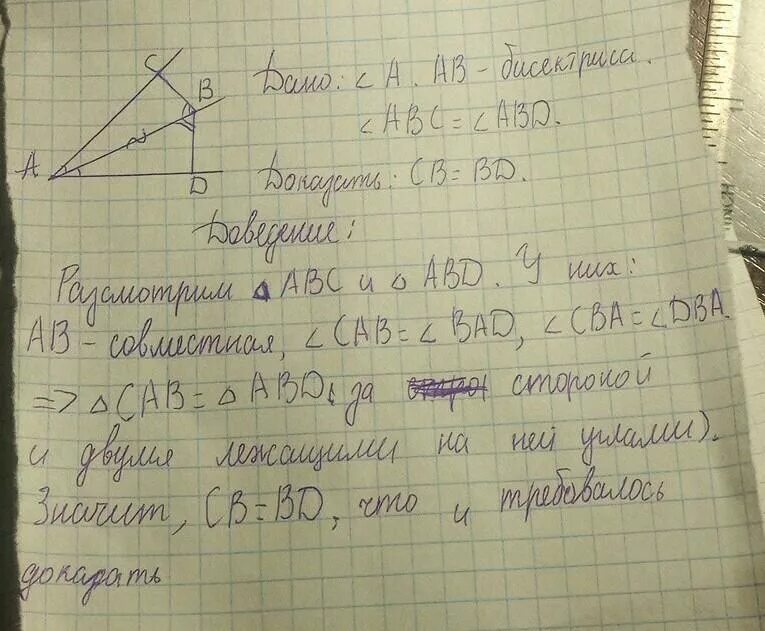 C
B
A
D
Дано: ∠A. AB - бисектриса.
∠ABC = ∠ABD.
Доказать: CB = BD.
Доведение:
Разсмотрим △ABC и △ABD. У них:
AB - совместная, ∠CAB = ∠BAD, ∠CBA = ∠DBA.
=> △CAB = △ABD (за стороной
и двумя лежащими на ней углами).
Значит, CB = BD, что и требовалось
доказать
INCH